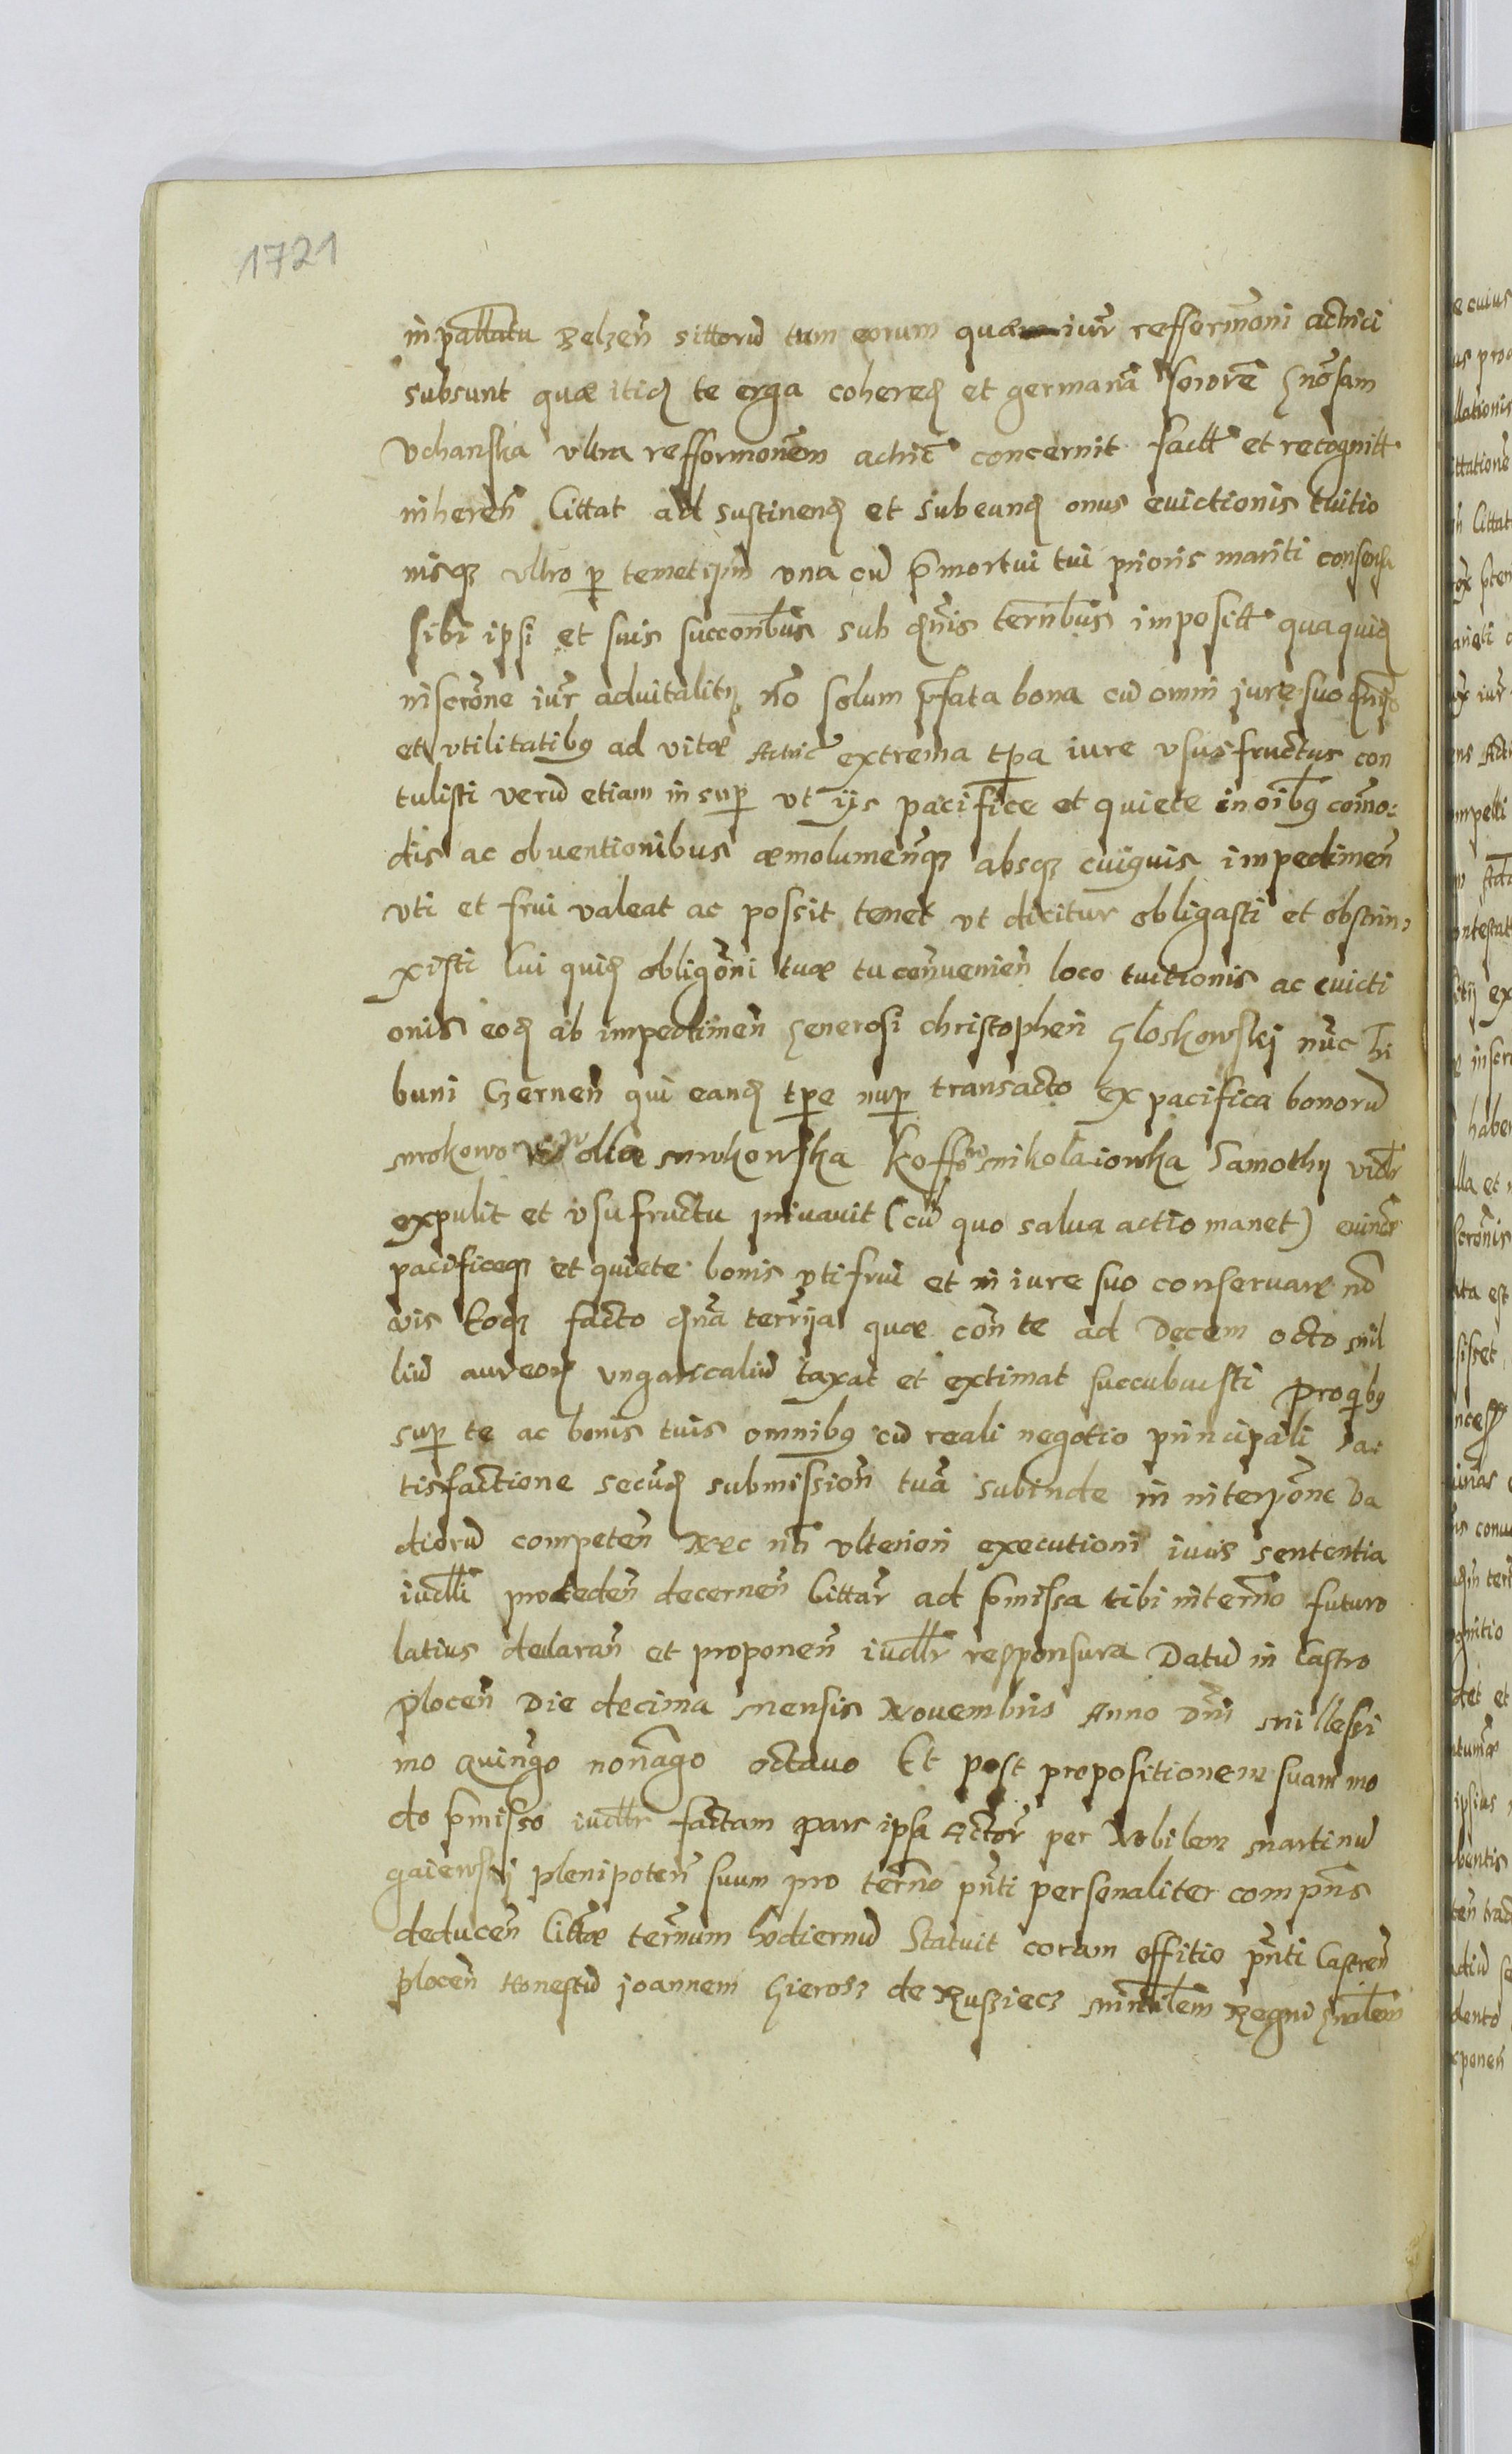 1721
in pallatu Belzen̄ sittorū tum eorum quæ iur̄ reffermōni actrici
subsunt quæ itid te erga cohered et germanā sororē gn̄osam
Uchanska ultra refformonēm actric̄ concernit factt et recognitt
inheren̄ Cittat ad sustinend et subeund onus evictionis tuitio
nisq ultro p temetipm̄ una cū p̄mortui tui prioris mariti consensu
sibi ipsi et suis succonībus sub qn̄is tern̄ibus impositt quaquid
inscrōne iur̄ advitalitt nō solum p̄fata bona cū omni iure suo
et utilitatibq ad vitæ Actric̄ extrema tp̄a iure ususfructus con
tulisti verū etiam insup ut ijs pacifice et quiete in oībq com̄o:
dis ac obventionibus æmolumen̄q absq cuiquis impedimen̄
uti et frui valeat ac possit temet ut dicitur obligasti et obstrin,
xisti Cui quid obligōni tuæ tu con̄venien̄ loco tuitionis ac evicti
onis eod ab impedimen̄ Generosi christopheri Gloskowskj nūc tri
buni Czernen̄ qui eand tp̄e nup transacto ex pacifica bonorū
mrokowo wolia mrokowska Koff mikolaiowka Samothy vidr̄
expulit et usufructu privavit (cū quo salva actio manet) evincer̄
pacificeq et quiete bonis uti frui et in iure suo conservare nō
vis Eoq facto qn̄a terr̄ija quæ con̄ te ad Decem octo mil
liū aureor ungaricaliū taxat et extimat succubuisti pro qibq
sup te ac bonis tuis omnibq cū reali negotio principali sa:
tisfactione secūd submission̄ tuā subinde in interpōne va
diorū competen̄ Nec nō ulteriori executioni iuris sententia
iudlli proceden̄ decernen̄ Cittar̄ ad p̄missa tibi in tern̄o futuro
latius declaran̄ et proponen̄ iudllr responsura Datū in Castro
Plocen̄ Die decima mensis Novembris Anno Dn̄i millessi
mo Quingo nonāgo octavo Et post propositionem suam mo
do p̄misso iudllr factam pars ipsa Actor̄ per Nobilem martinū
gaiewskj plenipoten̄ suum pro tern̄o pn̄ti personaliter compn̄s
deducen̄ Cittæ term̄num hodiernū Statuit coram offitio pn̄ti Castren̄
plocen̄ Honestū joannem Gierosz de Rusziecz ministlem Regni Gnālem